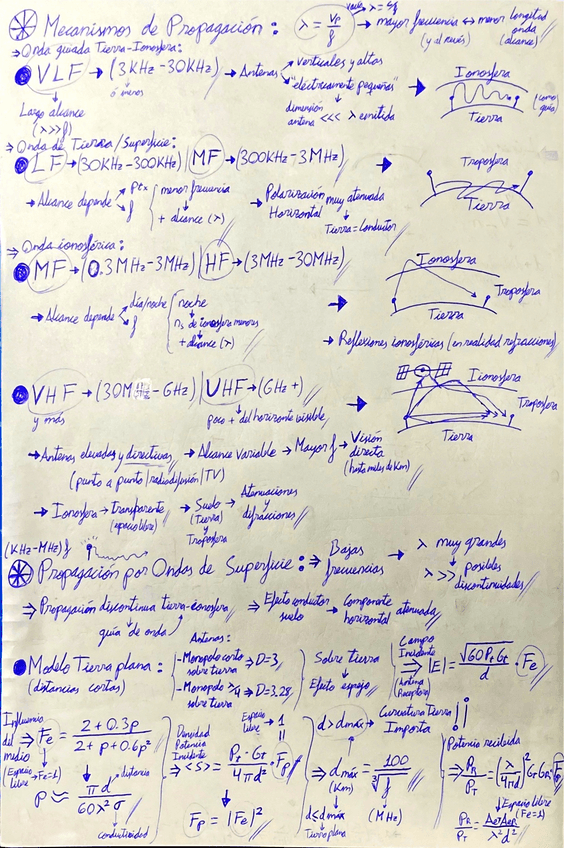 Mecanismos de Propagación: λ = Vp/f → mayor frecuencia ↔ menor longitud onda
(y al revés) (alcance)
⇒ Onda guiada Tierra-Ionosfera:
VLF → (3KHz-30KHz) → Antenas verticales y altas
"eléctricamente pequeñas"
ó menos
Largo alcance
(λ>>>f)
dimensión antena <<< λ emitida
Ionosfera
(como guía)
Tierra
⇒ Onda de Tierra/Superficie:
LF → (30KHz-300KHz) | MF → (300KHz-3MHz)
→ Alcance depende Ptx
f
menor frecuencia
+ alcance (λ)
→ Polarización Horizontal muy atenuada
Tierra = Conductor
Troposfera
Tierra
⇒ Onda ionosférica:
MF → (0.3MHz-3MHz) | HF → (3MHz-30MHz)
→ Alcance depende día/noche
f
noche
ns de ionosfera menores
+ alcance (λ)
Ionosfera
Troposfera
Tierra
→ Reflexiones ionosféricas (en realidad refracciones)
VHF → (30MHz-GHz) | UHF → (GHz+)
y más
poco + del horizonte visible
Ionosfera
Troposfera
Tierra
→ Antenas elevadas y directivas → Alcance variable → Mayor f → Visión directa
(punto a punto | radiodifusión | TV)
(hasta miles de Km)
→ Ionosfera → Transparente (espacio libre) → Suelo (Tierra) y Troposfera → Atenuaciones y difracciones
(KHz-MHz) f
Propagación por Ondas de Superficie: ⇒ Bajas frecuencias → λ muy grandes
λ>> posibles discontinuidades
⇒ Propagación discontinua tierra-ionosfera ⇒ Efecto conductor suelo → Componente horizontal atenuada
guía de onda
Modelo Tierra plana:
(distancias cortas)
Antenas:
- Monopolo corto sobre tierra ⇒ D=3
- Monopolo λ/4 sobre tierra ⇒ D=3.28
Sobre tierra
Efecto espejo
Campo Incidente
(Antena Receptora)
⇒ |E| = √(60 Pt Gt)/d · Fe
Influencia del medio
(Espacio libre → Fe=1)
⇒ Fe = (2+0.3p)/(2+p+0.6p²)
p ≈ πd/(60λ²σ)
distancia
conductividad
Densidad Potencia Incidente
Espacio libre → 1
⇒ <S> = (Pt·Gt)/(4πd²) · Fp
Fp = |Fe|²
d > dmáx → Curvatura Tierra Importa!!
⇒ dmáx = 100/∛f
(Km)
(MHz)
d<dmáx
Tierra plana
Potencia recibida
⇒ PR/PT = (λ/4πd)² GT GR Fp
Espacio libre (Fe=1)
PR/PT = AeT AeR/(λ²d²)